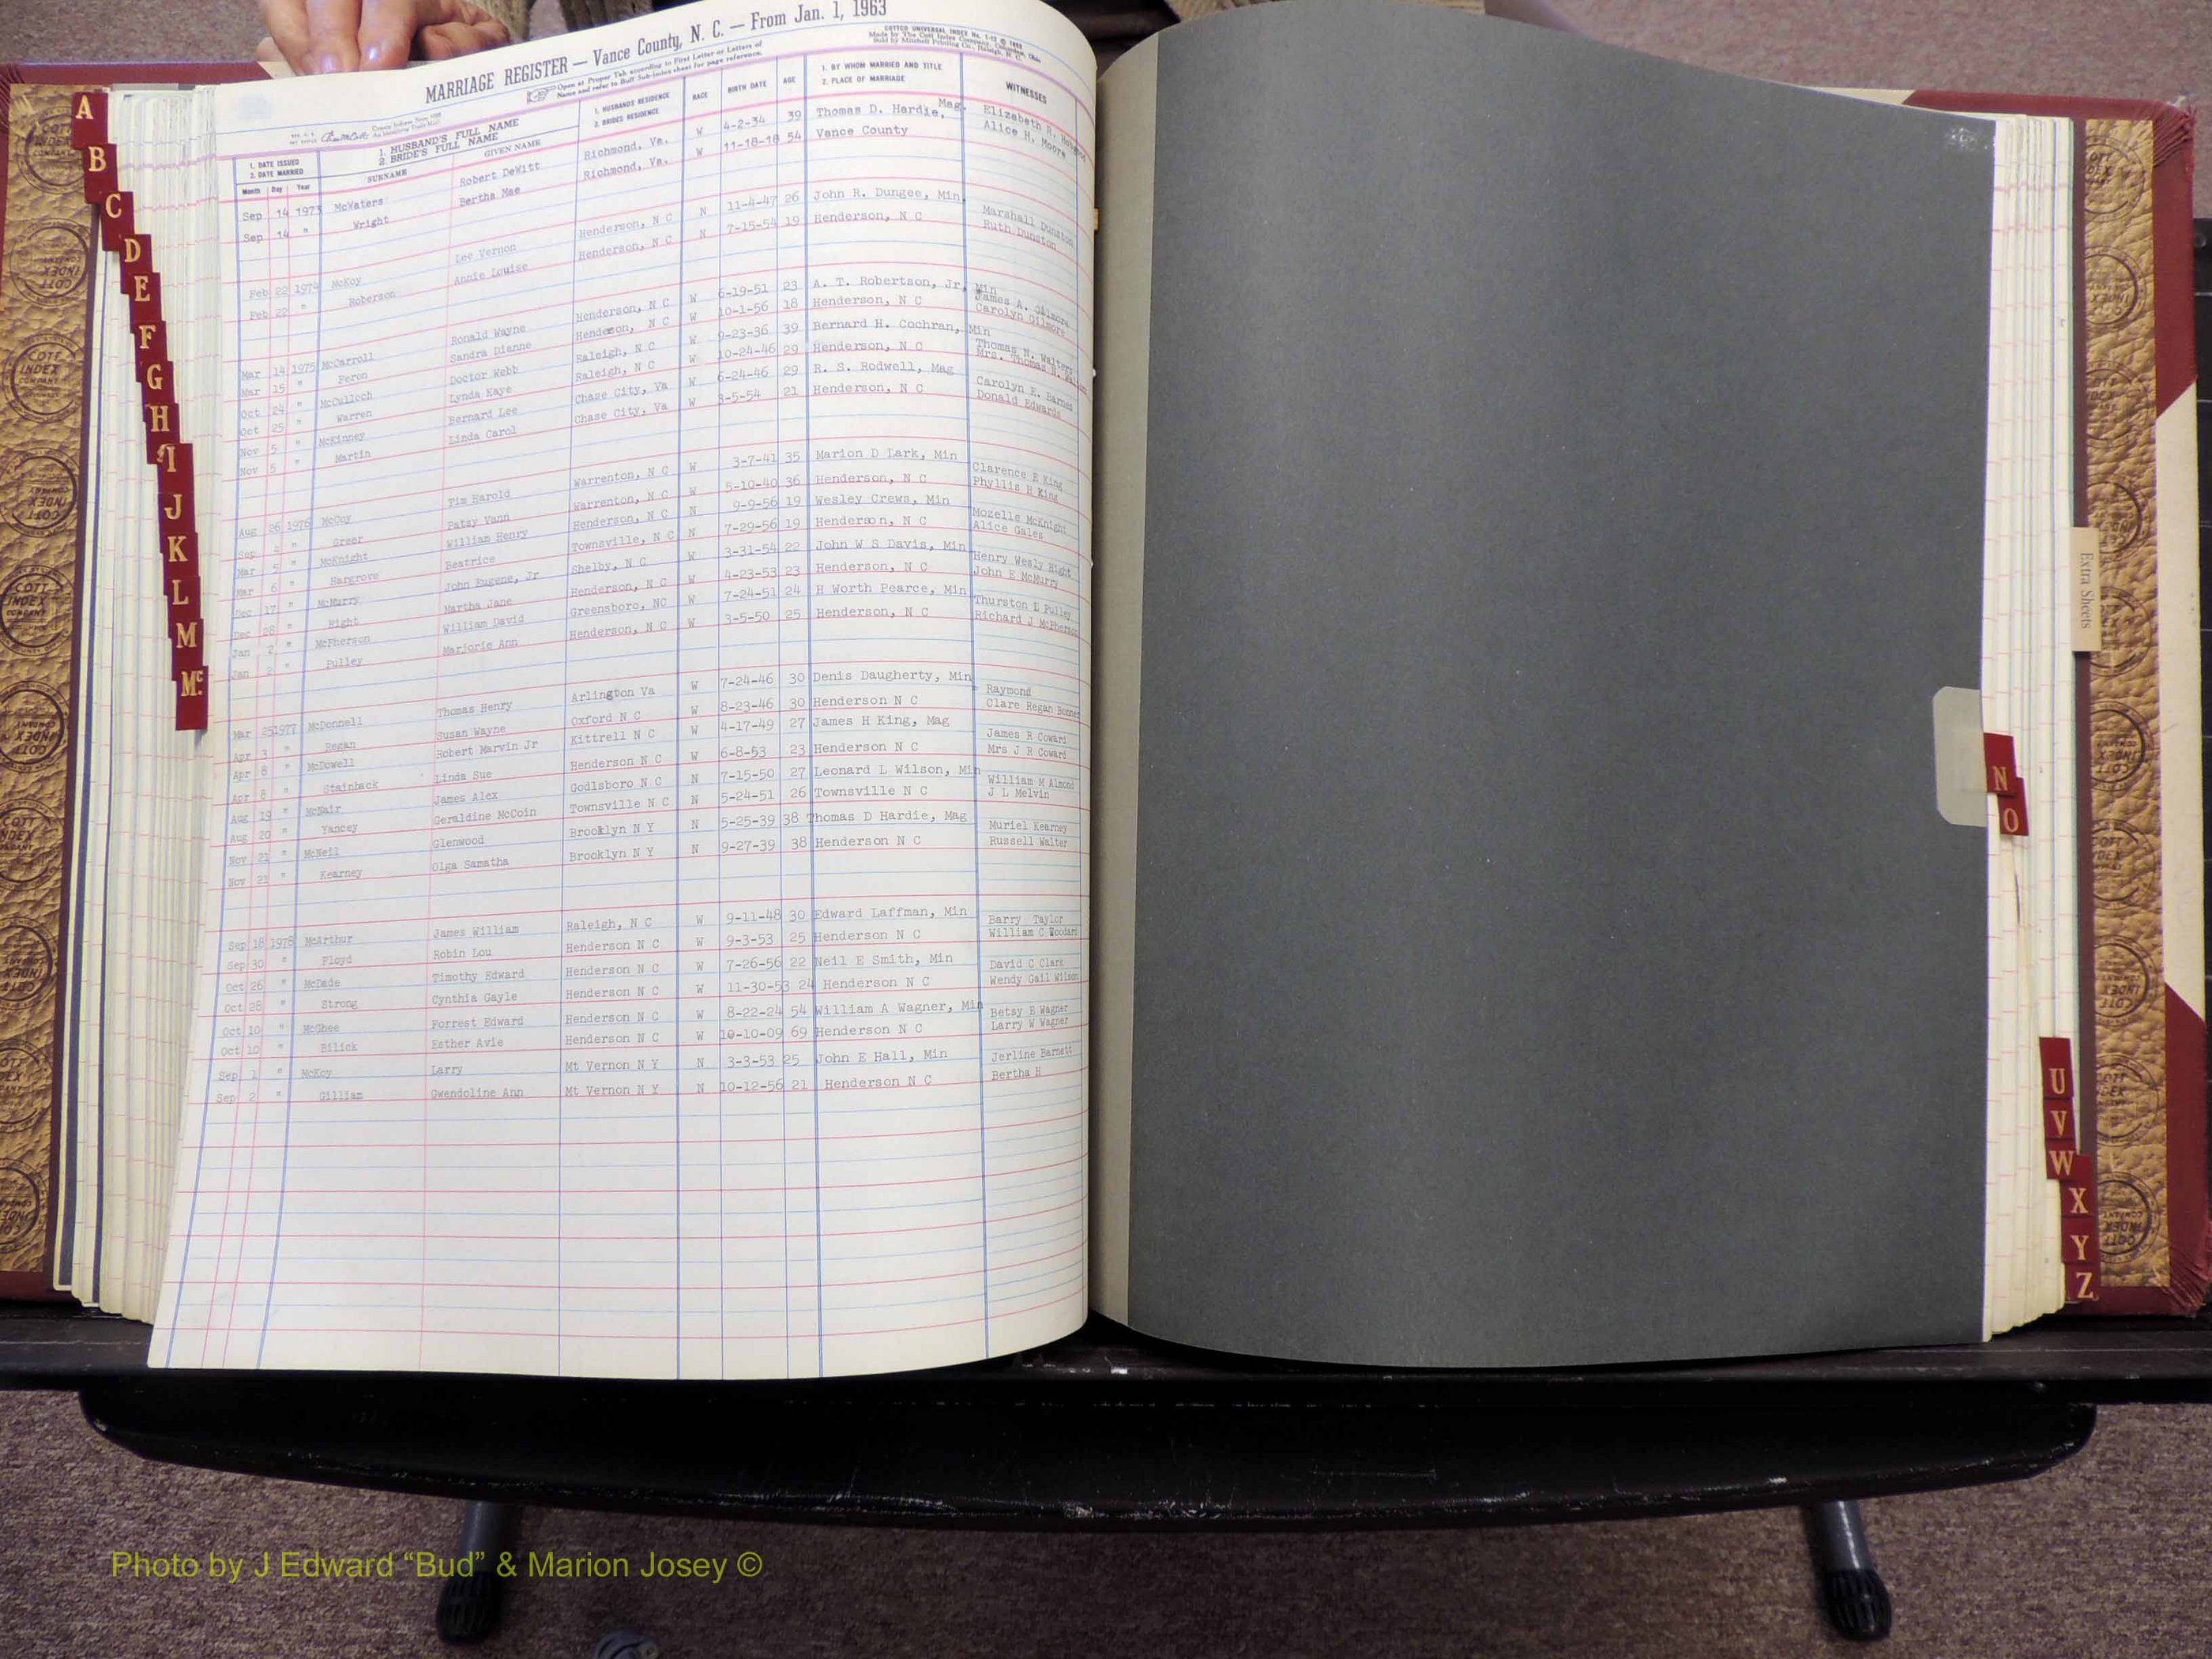 MARRIAGE REGISTER — Vance County, N. C. — From Jan. 1, 1963
Open at Proper Tab according to First Letter or Letters of
Name and refer to Buff Sub-index sheet for page reference.
COTTCO UNIVERSAL INDEX
Made by The Cott Index Company, Columbus, Ohio
Sold by Mitchell Printing Co., Raleigh, N. C.
1. DATE ISSUED 2. DATE MARRIED Month Day Year
1. HUSBAND'S FULL NAME 2. BRIDE'S FULL NAME SURNAME GIVEN NAME
1. HUSBANDS RESIDENCE 2. BRIDES RESIDENCE
RACE BIRTH DATE AGE
1. BY WHOM MARRIED AND TITLE 2. PLACE OF MARRIAGE
WITNESSES
Sep 14 1973 McWaters Robert DeWitt Richmond, Va. W 4-2-34 39 Thomas D. Hardie, Mag. Elizabeth R.
Sep 14 " Wright Bertha Mae Richmond, Va. W 11-18-18 54 Vance County Alice H. Moore
Feb 22 1974 McKoy Lee Vernon Henderson, N C N 11-4-47 26 John R. Dungee, Min. Marshall Dunston
Feb 22 " Roberson Annie Louise Henderson, N C N 7-15-54 19 Henderson, N C Ruth Dunston
Mar 14 1975 McCarroll Ronald Wayne Henderson, N C W 6-19-51 23 A. T. Robertson, Jr, Min James A. Gilmore
Mar 15 " Feron Sandra Dianne Henderson, N C W 10-1-56 18 Henderson, N C Carolyn Gilmore
Oct 24 " McCulloch Doctor Webb Raleigh, N C W 9-23-36 39 Bernard H. Cochran, Min Thomas N. Walters
Oct 25 " Warren Lynda Kaye Raleigh, N C W 10-24-46 29 Henderson, N C Mrs. Thomas N.
Nov 5 " McKinney Bernard Lee Chase City, Va W 6-24-46 29 R. S. Rodwell, Mag Carolyn E. Barnes
Nov 5 " Martin Linda Carol Chase City, Va W 3-5-54 21 Henderson, N C Donald Edwards
Aug 26 1976 McCoy Tim Harold Warrenton, N C W 3-7-41 35 Marion D Lark, Min Clarence E King
Sep 4 " Greer Patsy Vann Warrenton, N C W 5-10-40 36 Henderson, N C Phyllis H King
Mar 5 " McKnight William Henry Henderson, N C N 9-9-56 19 Wesley Crews, Min Mozelle McKnight
Mar 6 " Hargrove Beatrice Townsville, N C N 7-29-56 19 Henderson, N C Alice Gales
Dec 17 " McMurry John Eugene, Jr Shelby, N C W 3-31-54 22 John W S Davis, Min Henry Wesly Hight
Dec 28 " Hight Martha Jane Henderson, N C W 4-23-53 23 Henderson, N C John E McMurry
Jan 2 " McPherson William David Greensboro, NC W 7-24-51 24 H Worth Pearce, Min Thurston L Pulley
Jan 2 " Pulley Marjorie Ann Henderson, N C W 3-5-50 25 Henderson, N C Richard J McPherson
Mar 25 1977 McDonnell Thomas Henry Arlington Va W 7-24-46 30 Denis Daugherty, Min Raymond
Apr 3 " Regan Susan Wayne Oxford N C W 8-23-46 30 Henderson N C Clare Regan
Apr 8 " McDowell Robert Marvin Jr Kittrell N C W 4-17-49 27 James H King, Mag James R Coward
Apr 8 " Stainback Linda Sue Henderson N C W 6-8-53 23 Henderson N C Mrs J R Coward
Aug 19 " McNair James Alex Godlsboro N C N 7-15-50 27 Leonard L Wilson, Min William M Almond
Aug 20 " Yancey Geraldine McCoin Townsville N C N 5-24-51 26 Townsville N C J L Melvin
Nov 21 " McNeil Glenwood Brooklyn N Y N 5-25-39 38 Thomas D Hardie, Mag Muriel Kearney
Nov 21 " Kearney Olga Samatha Brooklyn N Y N 9-27-39 38 Henderson N C Russell Walter
Sep 18 1978 McArthur James William Raleigh, N C W 9-11-48 30 Edward Laffman, Min Barry Taylor
Sep 30 " Floyd Robin Lou Henderson N C W 9-3-53 25 Henderson N C William C Woodard
Oct 26 " McDade Timothy Edward Henderson N C W 7-26-56 22 Neil E Smith, Min David C Clark
Oct 28 " Strong Cynthia Gayle Henderson N C W 11-30-53 24 Henderson N C Wendy Gail Wilson
Oct 10 " McGhee Forrest Edward Henderson N C W 8-22-24 54 William A Wagner, Min Betsy E Wagner
Oct 10 " Bilick Esther Avie Henderson N C W 10-10-09 69 Henderson N C Larry W Wagner
Sep 1 " McKoy Larry Mt Vernon N Y N 3-3-53 25 John E Hall, Min Jerline Barnett
Sep 2 " Gilliam Gwendoline Ann Mt Vernon N Y N 10-12-56 21 Henderson N C Bertha H
A
B
C
D
E
F
G
H
I
J
K
L
M
Mc
Extra Sheets
N
O
U
V
W
X
Y
Z
COTT INDEX COMPANY
Photo by J Edward “Bud” & Marion Josey ©